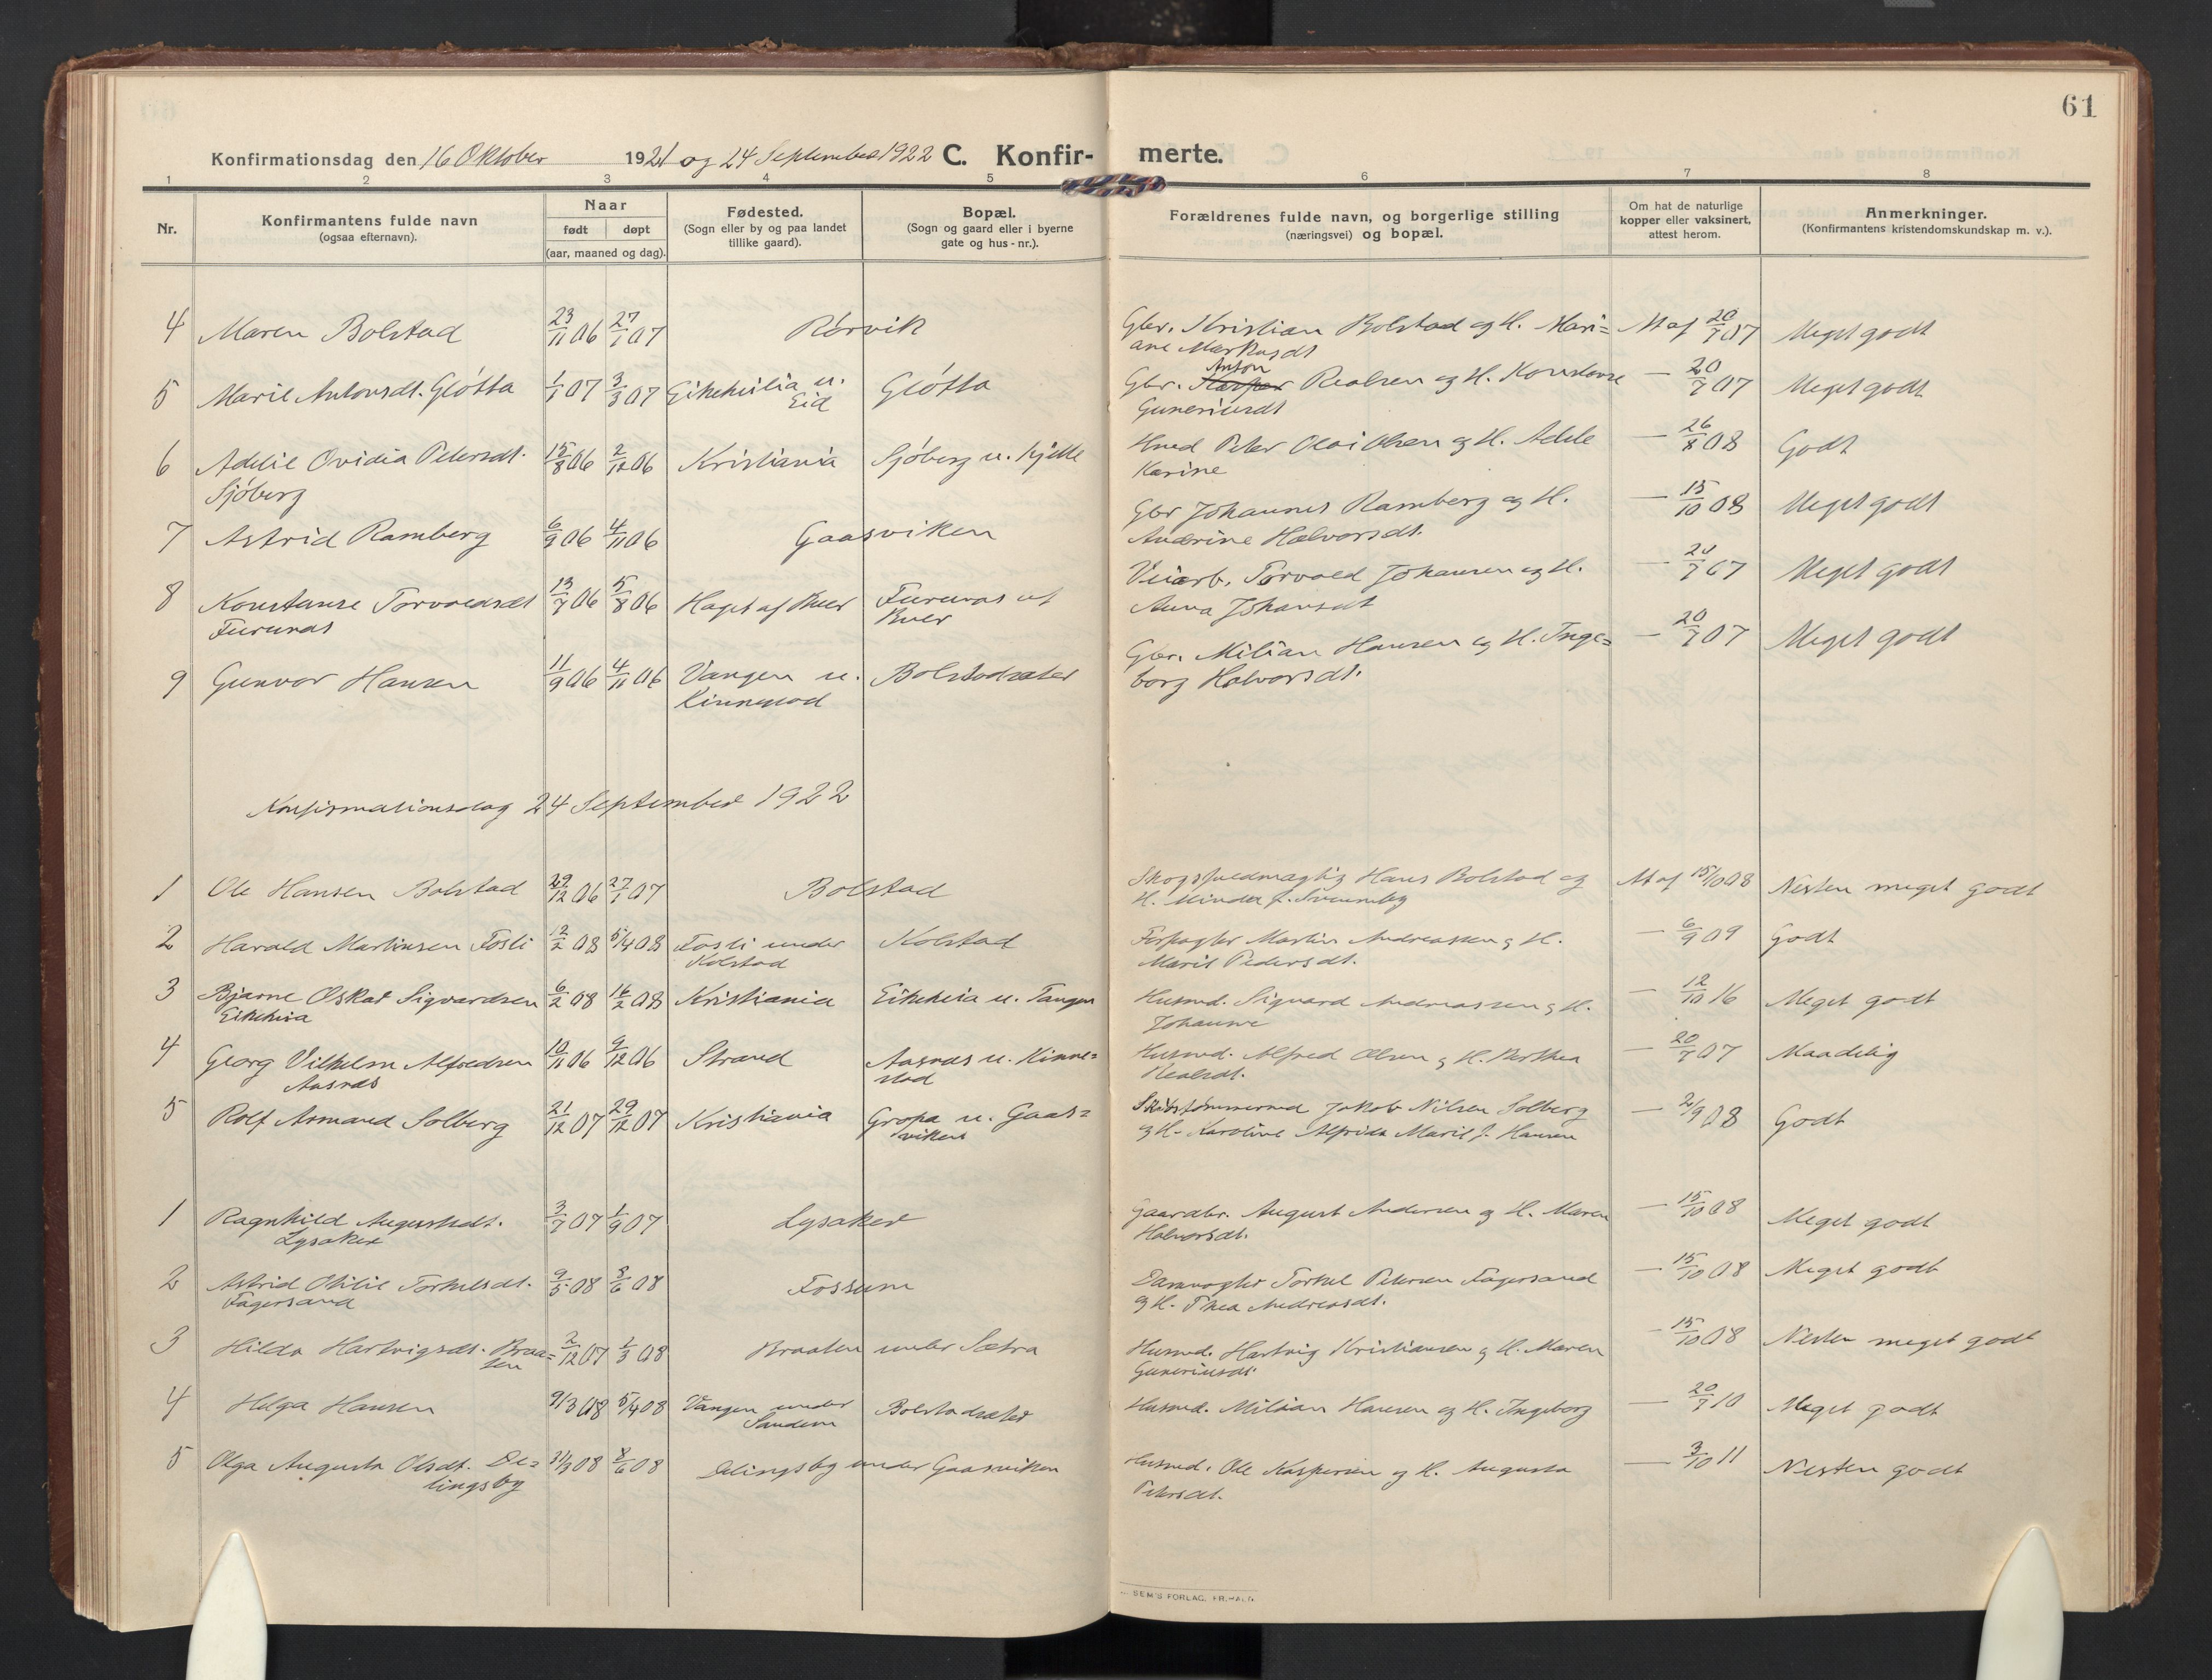 61
Konfirmationsdag den 16 Oktober 1921 og 24 September 1922 C. Konfir- merte.
1 2 3 4 5 6 7 8
Nr.
Konfirmantens fulde navn
(ogsaa efternavn).
Naar
født døpt
(aar, maaned og dag).
Fødested.
(Sogn eller by og paa landet
tillike gaard).
Bopæl.
(Sogn og gaard eller i byerne
gate og hus-nr.).
Forældrenes fulde navn, og borgerlige stilling
(næringsvei) og bopæl.
Om hat de naturlige
kopper eller vaksinert,
attest herom.
Anmerkninger.
(Konfirmantens kristendomskundskap m. v.).
4 Maren Bolstad 23/11 06 27/1 07 Rørvik Gbr. Kristian Bolstad og H. Mari= At af 20/7 07 Meget godt
ane Markusdt
5 Marie Antonsdt. Gløtta 1/1 07 3/3 07 Eikeheilia u. Gløtta Gbr. Kasper Anton Realsen og H. Konstanse — 20/7 07 Meget godt
Eid Guneriusdt
6 Adelie Ovidia Petersdt. 15/8 06 2/12 06 Kristiania Sjøberg u. Kjelle Husd Peter Olai Olsen og H. Adele — 26/8 08 Godt
Sjøberg Karine
7 Astrid Ramberg 6/9 06 4/11 06 Gaasviken Gbr Johannes Ramberg og H. — 15/10 08 Meget godt
Andrine Halvorsdt.
8 Konstanse Torvaldsdt 13/7 06 5/8 06 Haget af Buer Furunes af Veiarb. Torvald Johansen og H. — 20/7 07 Meget godt
Furunes Buer Anna Johansdt
9 Gunvor Hansen 11/9 06 4/11 06 Vangen u. Bolstadsæter Gbr. Milian Hansen og H. Inge= — 20/7 07 Meget godt
Kinnestad borg Halvorsdt.
Konfirmationsdag 24 September 1922
1 Ole Hansen Bolstad 29/12 06 27/1 07 Bolstad Skogsfuldmægtig Hans Bolstad og At af 15/10 08 Nesten meget godt
H. Minda f.
2 Harald Martinsen Fosli 12/2 08 5/4 08 Fosli under Kolstad Forpagter Martin Andreassen og H. — 6/9 09 Godt
Kolstad Marie Pedersdt.
3 Bjarne Oskar Sigvardsen 6/2 08 16/2 08 Kristiania Eikeheia u. Tangen Husmd. Sigvard Andreassen og H. — 12/10 16 Meget godt
Eikeheia Johanne
4 Georg Vilhelm Alfredsen 10/11 06 9/12 06 Strand Aasnæs u. Kinne= Husmd. Alfred Olsen og H. Berthea — 20/7 07 Maadelig
Aasnæs stad Realsdt.
5 Rolf Armand Solberg 21/12 07 29/12 07 Kristiania Gropa u. Gaas= Skibstømmermd Jakob Nilsen Solberg — 2/9 08 Godt
viken og H. Karoline Alfrida Marie f. Hansen
1 Ragnhild Augustsdt. 3/7 07 1/9 07 Lysaker Gaardbr. August Andersen og H. Maren — 15/10 08 Meget godt
Lysaker Halvorsdt.
2 Astrid Otilie Torkelsdt. 9/5 08 8/6 08 Fossum Damvogter Torkel Petersen Fagersand — 15/10 08 Meget godt
Fagersand og H. Thea Andreasdt.
3 Hilda Hartvigsdt. Braa= 2/12 07 1/3 08 Braaten under Sætra Husmd. Hartvig Kristiansen og H. Maren — 15/10 08 Nesten meget godt
ten Guneriusdt.
4 Helga Hansen 9/3 08 5/4 08 Vangen under Bolstadsæter Husmd. Milian Hansen og H. Ingeborg — 20/7 10 Meget godt
Sandem
5 Olga Augusta Olsdt. De= 31/3 08 8/6 08 Delingsby under Gaasviken Husmd. Ole Kaspersen og H. Augusta — 3/10 11 Nesten godt
lingsby Petersdt.
SEM'S FORLAG, FR.HALD